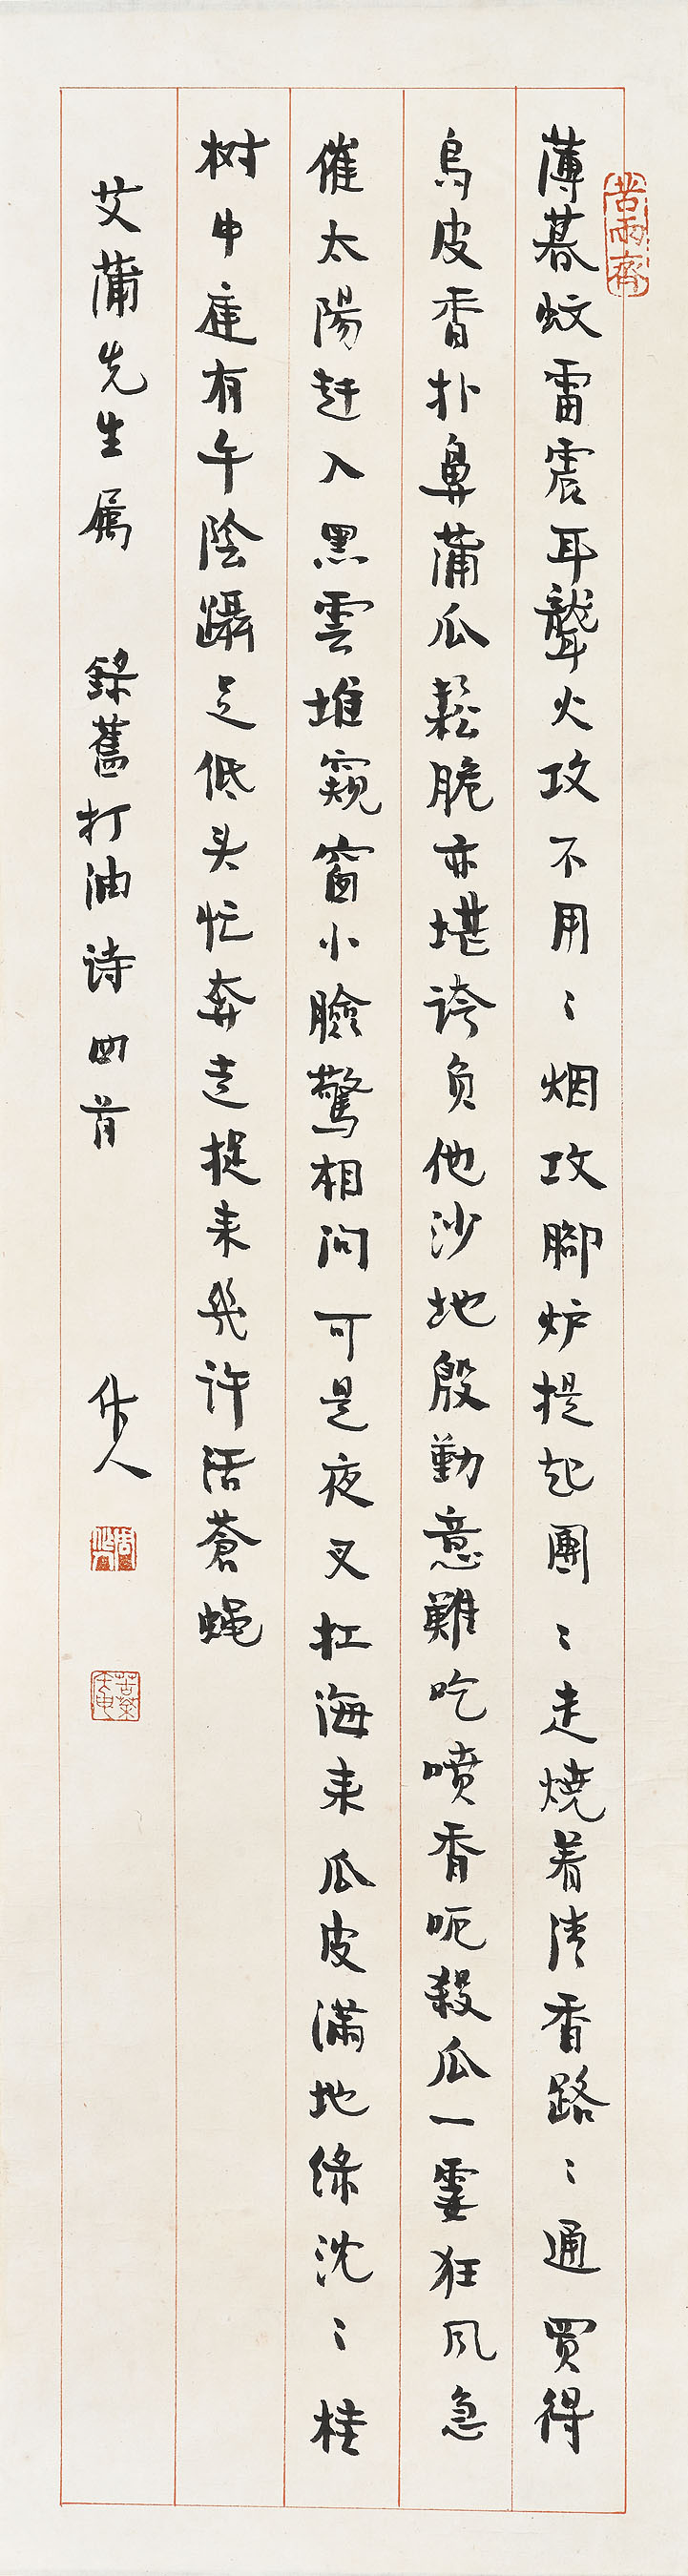 苦雨齋
薄暮蚊雷震耳聾火攻不用〻烟攻腳炉提起團〻走燒着清香路〻通買得
烏皮香扑鼻蒲瓜鬆脆亦堪誇负他沙地殷勤意難吃噴香呃殺瓜一霎狂风急
催太陽赶入黑雲堆窺窗小臉驚相问可是夜叉扛海来瓜皮滿地綠沈〻桂
树中庭有午陰躡足低头忙奔走捉来幾许活蒼蝇
艾蒲先生属 錄舊打油诗四首 作人
周作人
苦茶